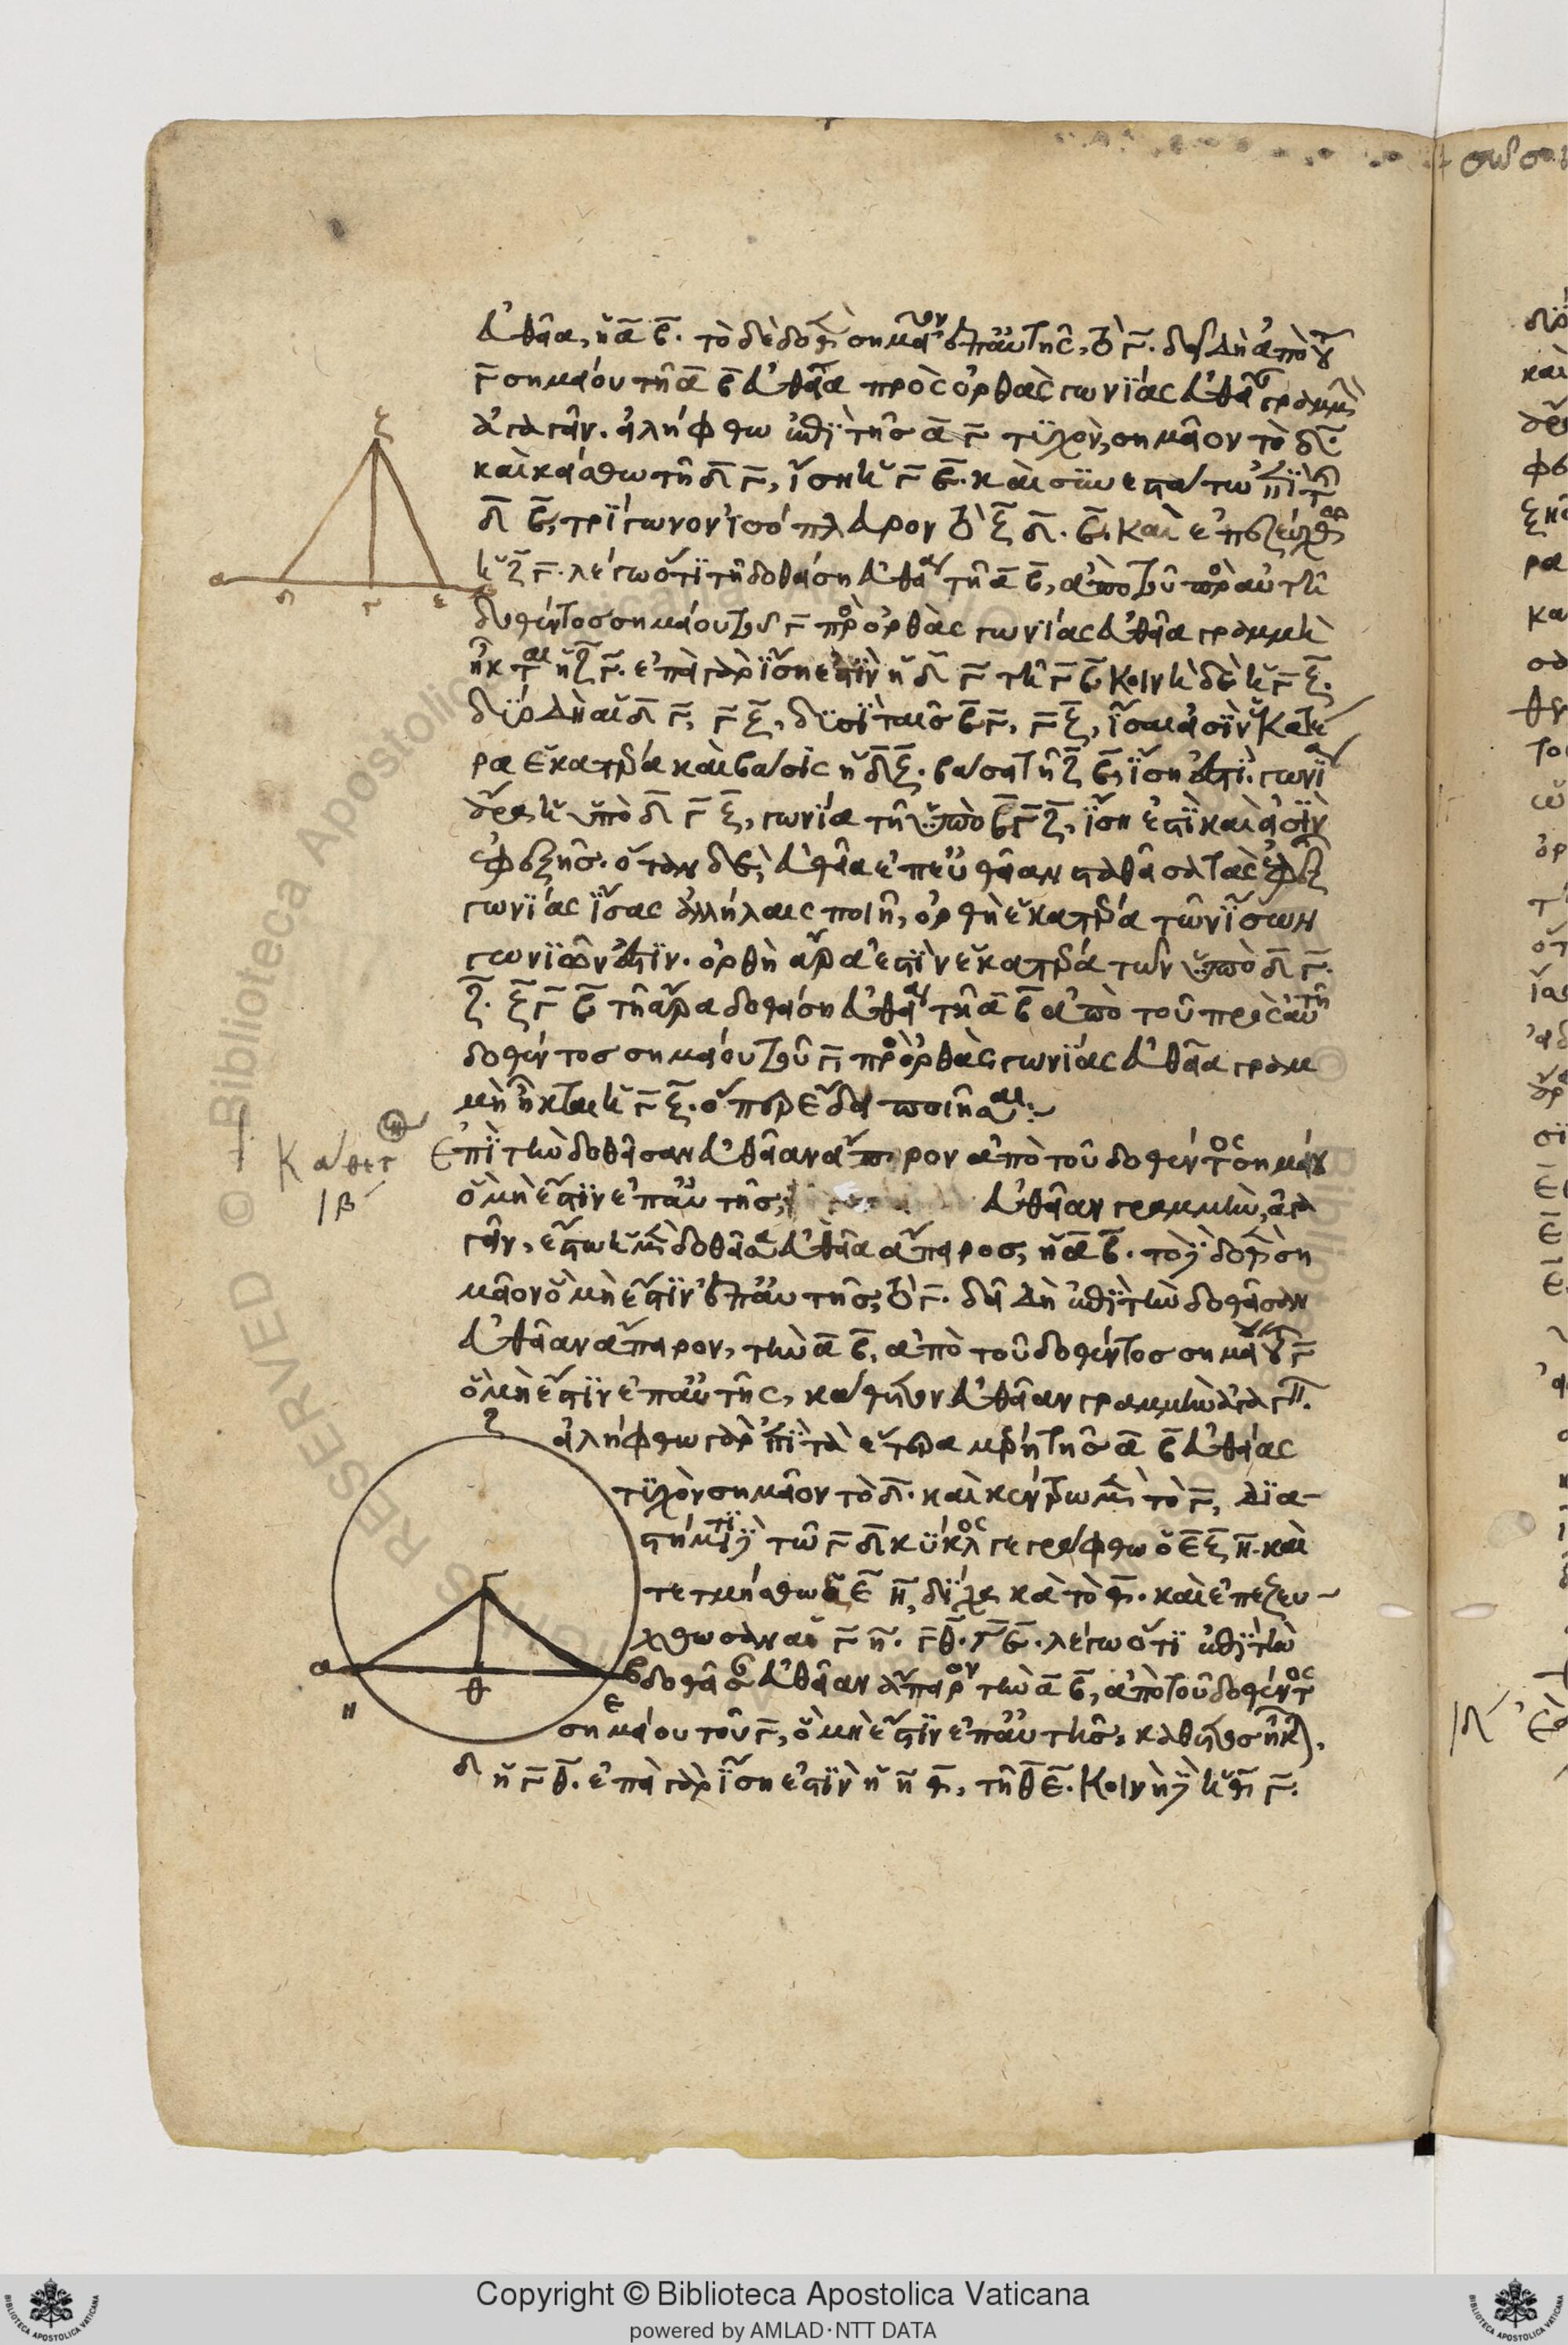 εὐθεῖα, ἡ α β. τὸ δὲ δοθὲν σημεῖον ἐπ' αὐτῆς, τὸ γ. δεῖ δὴ ἀπὸ τοῦ
γ σημείου τῆ α β εὐθεία πρὸς ὀρθὰς γωνίας εὐθεῖαν γραμμὴν
ἀγαγεῖν. εἰλήφθω ἐπὶ τῆς α γ τυχὸν σημεῖον τὸ δ.
καὶ κείσθω τῆ δ γ, ἴση ἡ γ ε. καὶ συνεστάτω ἐπὶ τῆς
δ ε, τρίγωνον ἰσόπλευρον τὸ ζ δ ε. καὶ ἐπεζεύχθω
ἡ ζ γ. λέγω ὅτι τῆ δοθείση εὐθεία τῆ α β, ἀπὸ τοῦ πρὸς αὐτῆ
δοθέντος σημείου τοῦ γ πρὸς ὀρθὰς γωνίας εὐθεῖα γραμμὴ
ἦκται ἡ ζ γ. ἐπεὶ γὰρ ἴση ἐστὶν ἡ δ γ τῆ γ ε κοινὴ δὲ ἡ γ ζ.
δύο δὴ αἱ δ γ, γ ζ, δυσὶ ταῖς ε γ, γ ζ, ἴσαι εἰσὶν ἑκατέ
ρα ἑκατέρα καὶ βάσις ἡ δ ζ. βάσει τῆ ζ ε, ἴση ἐστί. γωνία
ἄρα ἡ ὑπὸ δ γ ζ, γωνία τῆ ὑπὸ ε γ ζ, ἴση ἐστὶ καὶ εἰσὶν
ἐφεξῆς. ὅταν δὲ εὐθεῖα ἐπ' εὐθεῖαν σταθεῖσα τὰς ἐφεξῆς
γωνίας ἴσας ἀλλήλαις ποιῆ, ὀρθὴ ἑκατέρα τῶν ἴσων
γωνιῶν ἐστίν. ὀρθὴ ἄρα ἐστὶν ἑκατέρα τῶν ὑπὸ δ γ
ζ. ζ γ ε τῆ ἄρα δοθείση εὐθεία τῆ α β ἀπὸ τοῦ πρὸς αὐτῆ
δοθέντος σημείου τοῦ γ, πρὸς ὀρθὰς γωνίας εὐθεῖα γραμ
μὴ ἦκται ἡ γ ζ. ὅπερ ἔδει ποιῆσαι
ἐπὶ τὴν δοθεῖσαν εὐθεῖαν ἄπειρον ἀπὸ τοῦ δοθέντος σημείου
ὃ μή ἐστιν ἐπ' αὐτῆς, εὐθεῖαν γραμμὴν, ἀγα
γεῖν, ἔστω ἡ μὲν δοθεῖσα εὐθεῖα ἄπειρος, ἡ α β. τὸ δὲ δοθὲν ση
μεῖον ὃ μή ἐστιν ἐπ' αὐτῆς, τὸ γ. δεῖ δὴ ἐπὶ τὴν δοθεῖσαν
εὐθεῖαν ἄπειρον, τὴν α β, ἀπὸ τοῦ δοθέντος σημείου τοῦ γ
ὃ μή ἐστιν ἐπ' αὐτῆς, κάθετον εὐθεῖαν γραμμὴν ἀγαγεῖν.
εἰλήφθω γὰρ ἐπὶ τὰ ἕτερα μέρη τῆς α β εὐθείας
τυχὸν σημεῖον τὸ δ. καὶ κέντρω μὲν τὸ γ, δια
στήματι δὲ τῶ γ δ κύκλος γεγράφθω ὁ ε ζ η. καὶ
τετμήσθω ἡ ε η, δίχα κατὰ τὸ θ. καὶ ἐπεζεύ
χθωσαν αἱ γ η. γ θ. γ ε. λέγω ὅτι ἐπὶ τὴν
δοθεῖσαν εὐθεῖαν ἄπειρον τὴν α β, ἀπὸ τοῦ δοθέντος
σημείου τοῦ γ, ὃ μή ἐστιν ἐπ' αὐτῆς, κάθετος ἦκται
ἡ γ θ. ἐπεὶ γὰρ ἴση ἐστὶν ἡ η θ, τῆ θ ε. κοινὴ δὲ ἡ θ γ.
ζ
α δ γ ε
κάθετ
ιβ
ζ
γ
α β
θ
η ε
δ
© Biblioteca Apostolica Vaticana
Copyright © Biblioteca Apostolica Vaticana
powered by AMLAD·NTT DATA